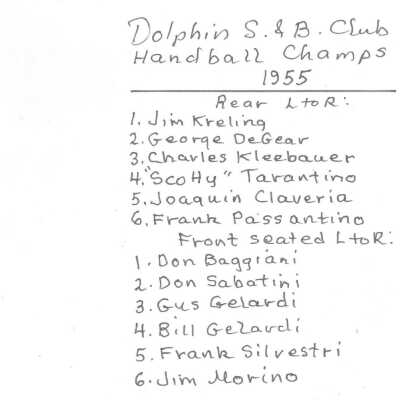 Dolphin S. & B. Club
Handball Champs
1955
Rear L to R:
1. Jim Kreling
2. George DeGear
3. Charles Kleebauer
4. "Scotty" Tarantino
5. Joaquin Claveria
6. Frank Passantino
Front seated L to R:
1. Don Baggiani
2. Don Sabatini
3. Gus Gelardi
4. Bill Gelardi
5. Frank Silvestri
6. Jim Morino